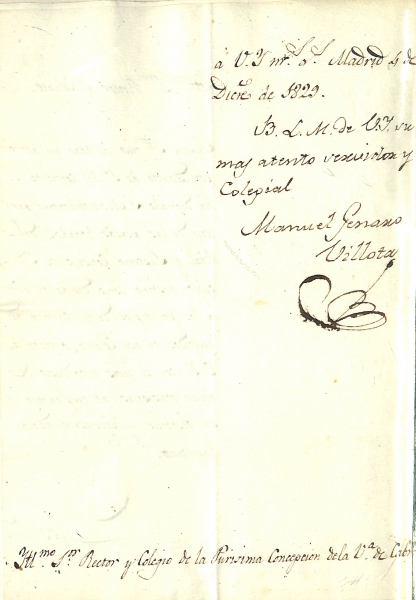 à V. Y. mˢ. aˢ. Madrid 4 de
Dicre de 1829.
B. L. M. de V.I. su
mas atento servidor y
Colegial
Manuel Genaro
Villota
Yllmo Sor Rector y Colegio de la Purisima Concepcion de la Va. de Cabr